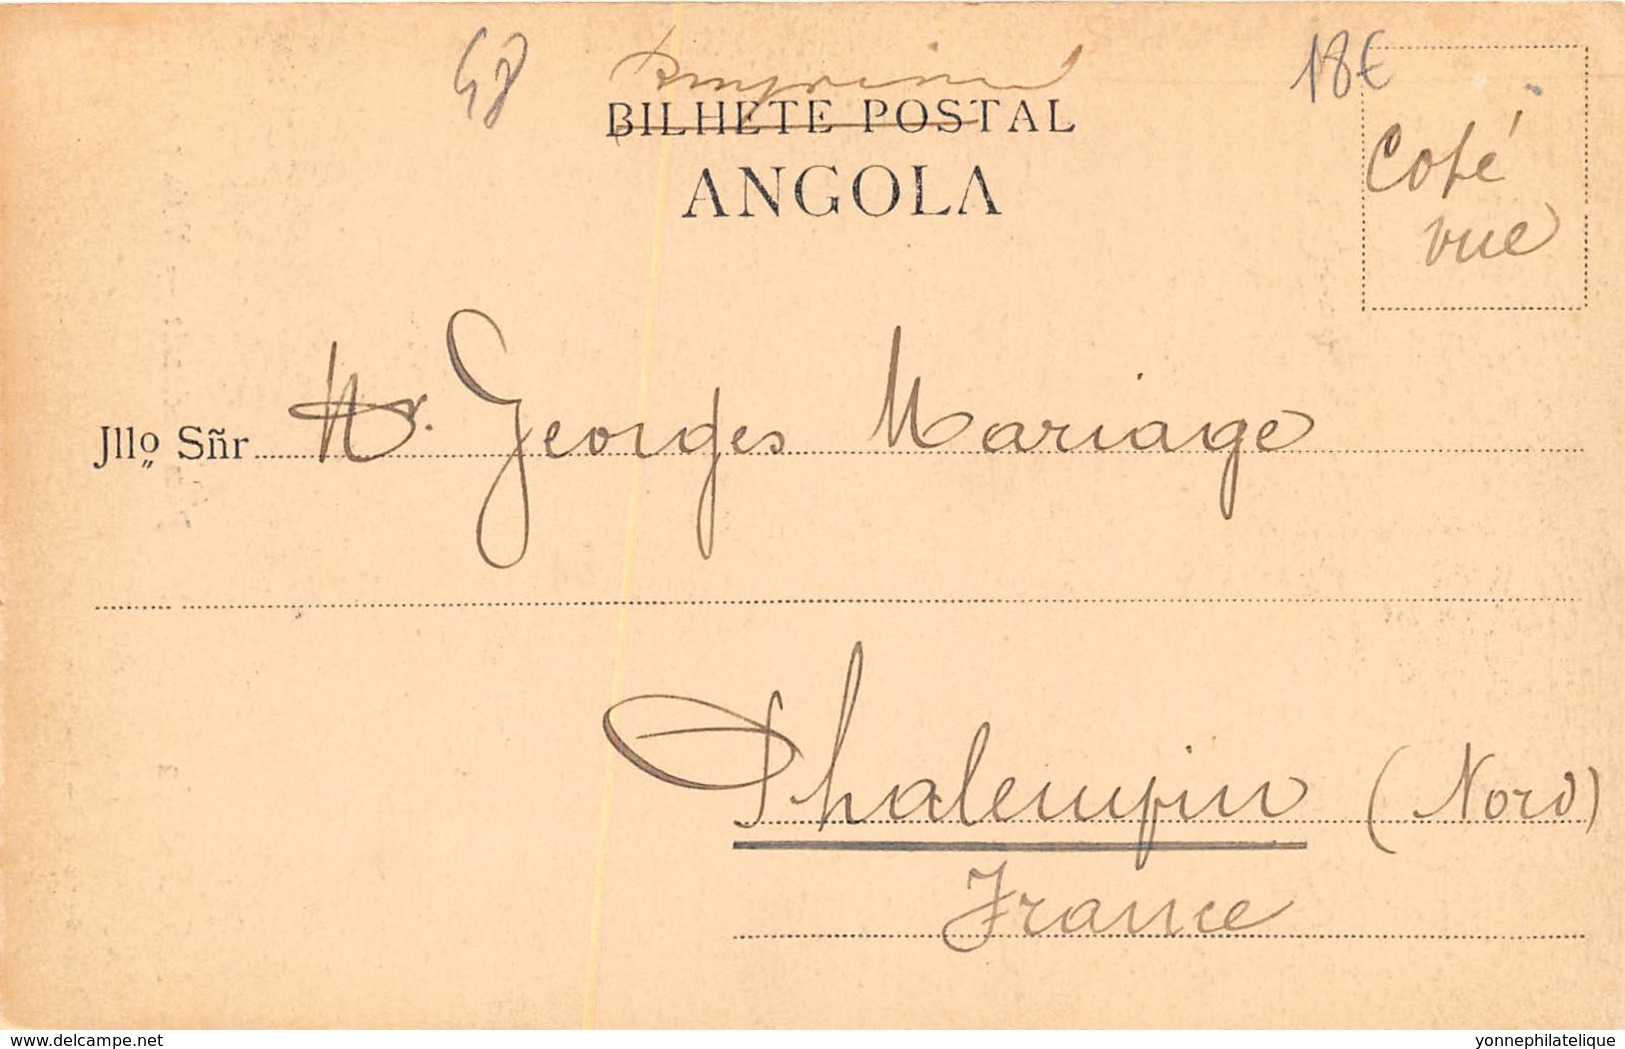 48
18€
Imprimé
BILHETE POSTAL
ANGOLA
Coté
vue
Jllo Sñr Mr. Georges Mariage
Phalempin (Nord)
France
delcampe.net
yonnephilatelique